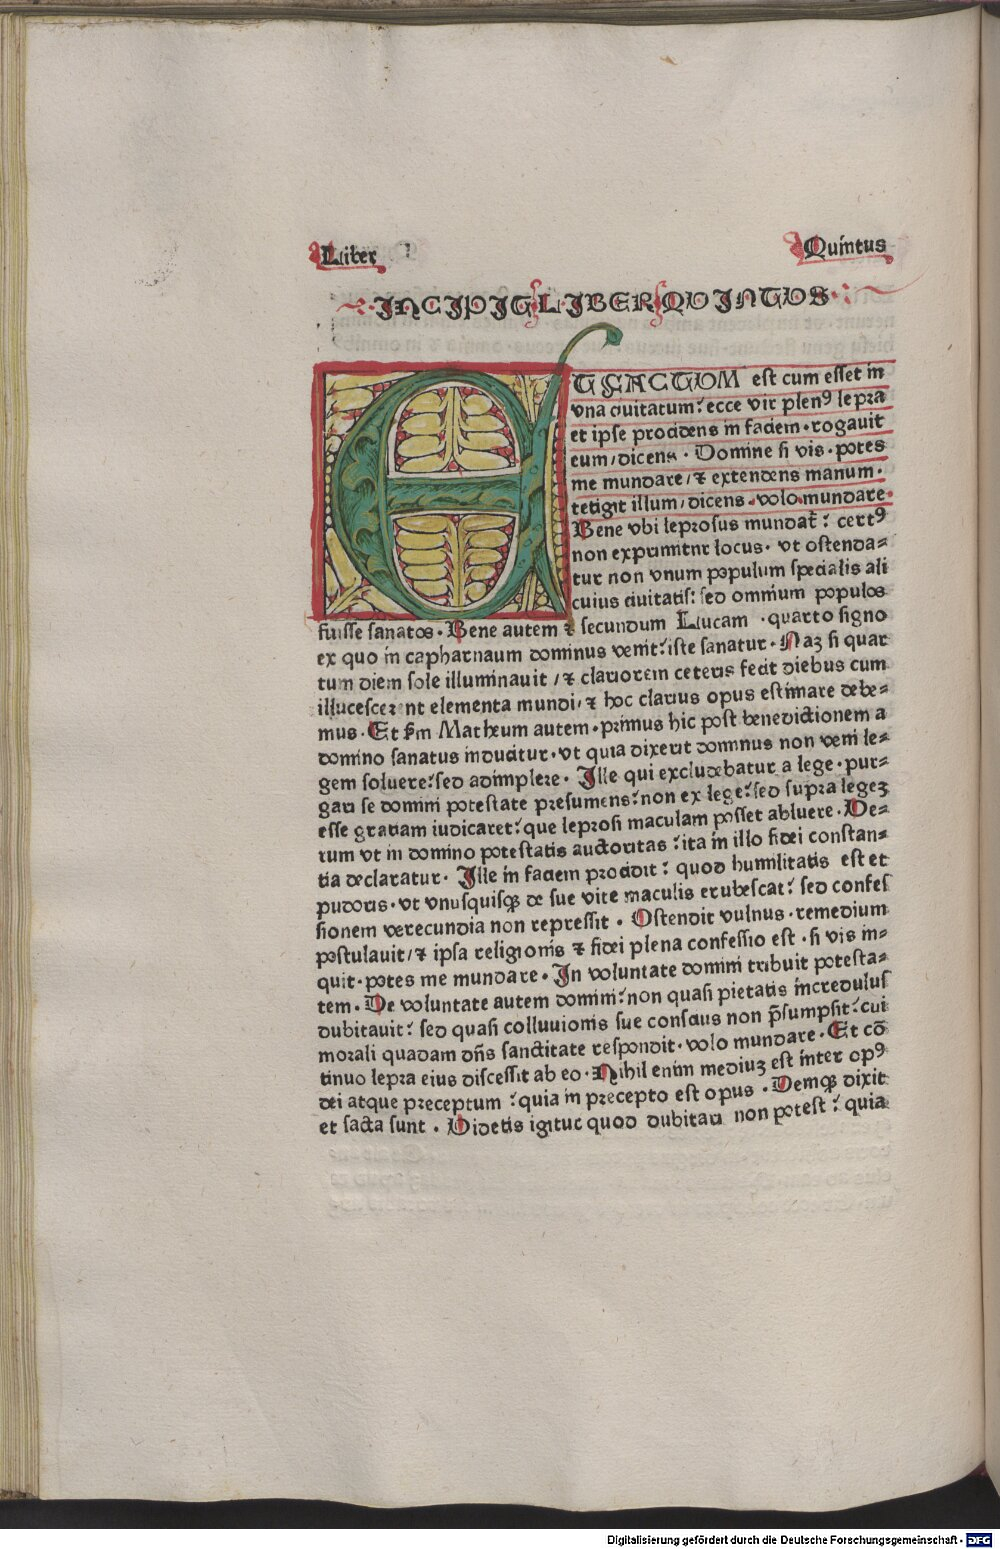 Liber
Quintus
INCIPIT LIBER QUINTUS
ET FACTUM est cum esset in
vna ciuitatum: ecce vir plenꝰ lepra
et ipse procidens in faciem · rogauit
eum / dicens · Domine si vis · potes
me mundare / ⁊ extendens manum ·
tetigit illum / dicens · volo mundare ·
Bene vbi leprosus mundat̃: certꝰ
non exprimitur locus · vt ostenda=
tur non vnum populum specialis ali
cuius ciuitatis: sed omnium populos
fuisse sanatos · Bene autem ⁊ secundum Lucam · quarto signo
ex quo in capharnaum dominus venit: iste sanatur · Naʒ si quar
tum diem sole illuminauit / ⁊ clariorem ceteris fecit diebus cum
illucescerent elementa mundi / ⁊ hoc clarius opus estimare debe=
mus · Et ẜm Matheum autem · primus hic post benedictionem a
domino sanatus inducitur · vt quia dixerat dominus non veni le=
gem soluere: sed adimplere · Ille qui excludebatur a lege · pur=
gari se domini potestate presumens: non ex lege: sed supra legeʒ
esse gratiam iudicaret: que leprosi maculam posset abluere · Ve=
rum vt in domino potestatis auctoritas: ita in illo fidei constan=
tia declaratur · Ille in faciem procidit: quod humilitatis est et
pudoris · vt vnusquisqꝫ de sue vite maculis erubescat: sed confes
sionem verecundia non repressit · Ostendit vulnus · remedium
postulauit / ⁊ ipsa religionis ⁊ fidei plena confessio est · si vis in=
quit · potes me mundare · In voluntate domini tribuit potesta=
tem · De voluntate autem domini: non quasi pietatis incredulus
dubitauit: sed quasi colluuionis sue conscius non p̃sumpsit: cui
morali quadam dñs sanctitate respondit · volo mundare · Et cō
tinuo lepra eius discessit ab eo · Nihil enim mediuʒ est inter opꝰ
dei atque preceptum: quia in precepto est opus · Deniqꝫ dixit
et facta sunt · Videtis igitur quod dubitari non potest: quia
Digitalisierung gefördert durch die Deutsche Forschungsgemeinschaft · DFG